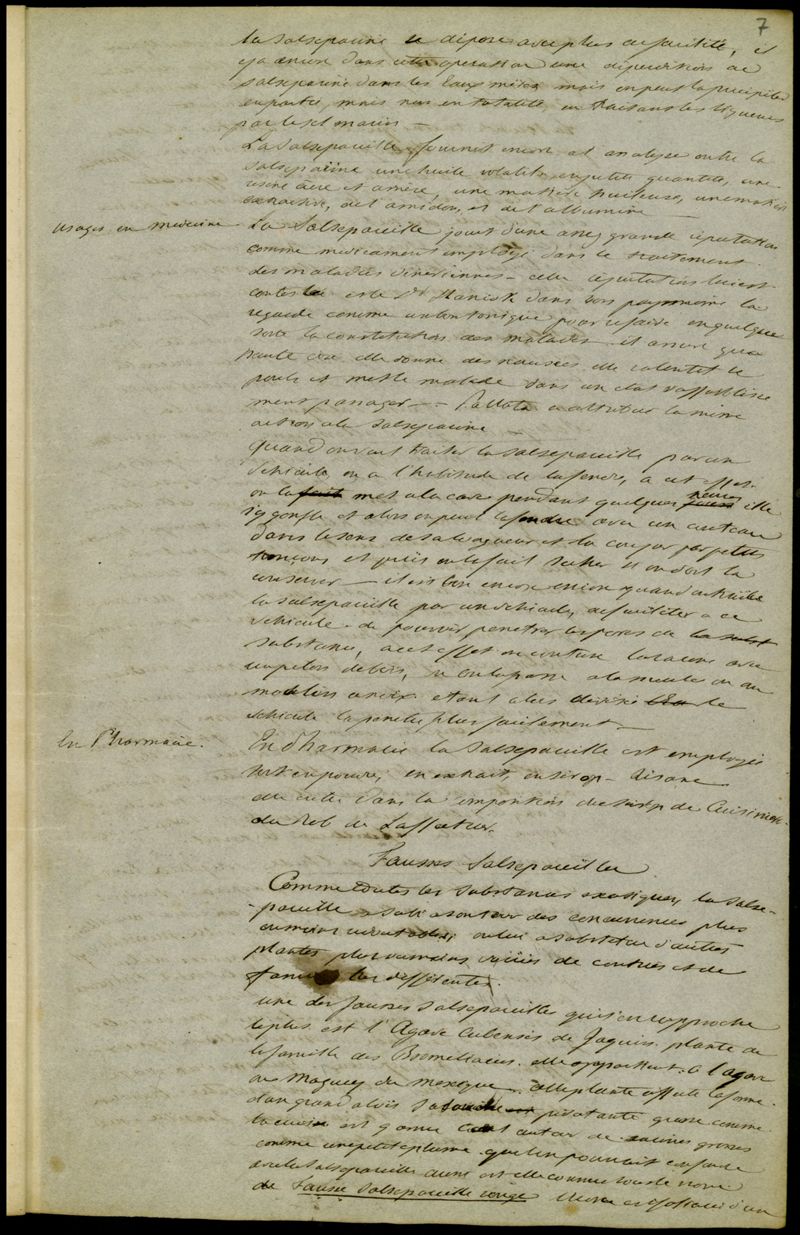 7
la salseparine se dépose avec plus de facilité, il
y a encore dans cette opération une déperdition de
salseparine dans les eaux mères mais on peut la précipiter
en partie, mais non en totalité en traitant les liqueurs
par le sel marin —
La Salsepareille fournit encore à l'analyse outre la
salseparine une huile volatile en petite quantité, une
résine âcre et amère, une matière huileuse, une matière
extractive, de l'amidon, et de l'albumine —
usages en medecine
La Salsepareille jouit d'une assez grande réputation
comme médicament employé dans le traitement
des maladies vénériennes — cette réputation lui est
contestée et le Dr dans son la
regarde comme un bon tonique pour refaire en quelque
sorte la constitution des malades il assure qu'à
haute dose elle donne des nausées elle ralentit le
pouls et met le malade dans un état d'affaiblisse
ment passager — Pallota a attribué la même
action à la salseparine —
Quand on veut traiter la salsepareille par un
véhicule on a l'habitude de la fendre, à cet effet
on la met à la cave pendant quelques heures elle
s'y gonfle et alors on peut la fendre avec un couteau
dans le sens de sa longueur et la couper par petits
tronçons et puis on la fait sécher si on doit la
conserver — il est bon encore quand on traite
la salsepareille par un véhicule, de faciliter à ce
véhicule de pouvoir pénétrer les pores de la subst
substance, à cet effet on contuse la racine avec
un pilon de bois, ou on la passe à la meule ou au
moulin étant alors divisée le
véhicule la pénètre plus facilement —
En Pharmacie.
En Pharmacie la Salsepareille est employée
soit en poudre, en extrait, en sirop — tisane
elle entre dans la composition du sirop de Cuisinier
du Rob de Laffecteur.
Fausses Salsepareilles
Comme toutes les substances exotiques, la salse-
pareille a subi à son tour des concurrences plus
ou moins redoutables, on lui a substitué d'autres
plantes plus ou moins voisines de contrées et de
familles différentes.
une des fausses salsepareilles qui s'en rapproche
le plus est l'Agave Cubensis de Jaquin. plante de
la famille des Bromeliacées. elle appartient à l'agave
ou Maguey du mexique. cette plante offre la forme
d'un grand aloès sa souche pivotante grosse comme
la cuisse est garnie tout autour de racines grosses
comme une petite plume que l'on pourrait confondre
avec la salsepareille aussi est elle connue sous le nom
de Fausse Salsepareille rouge